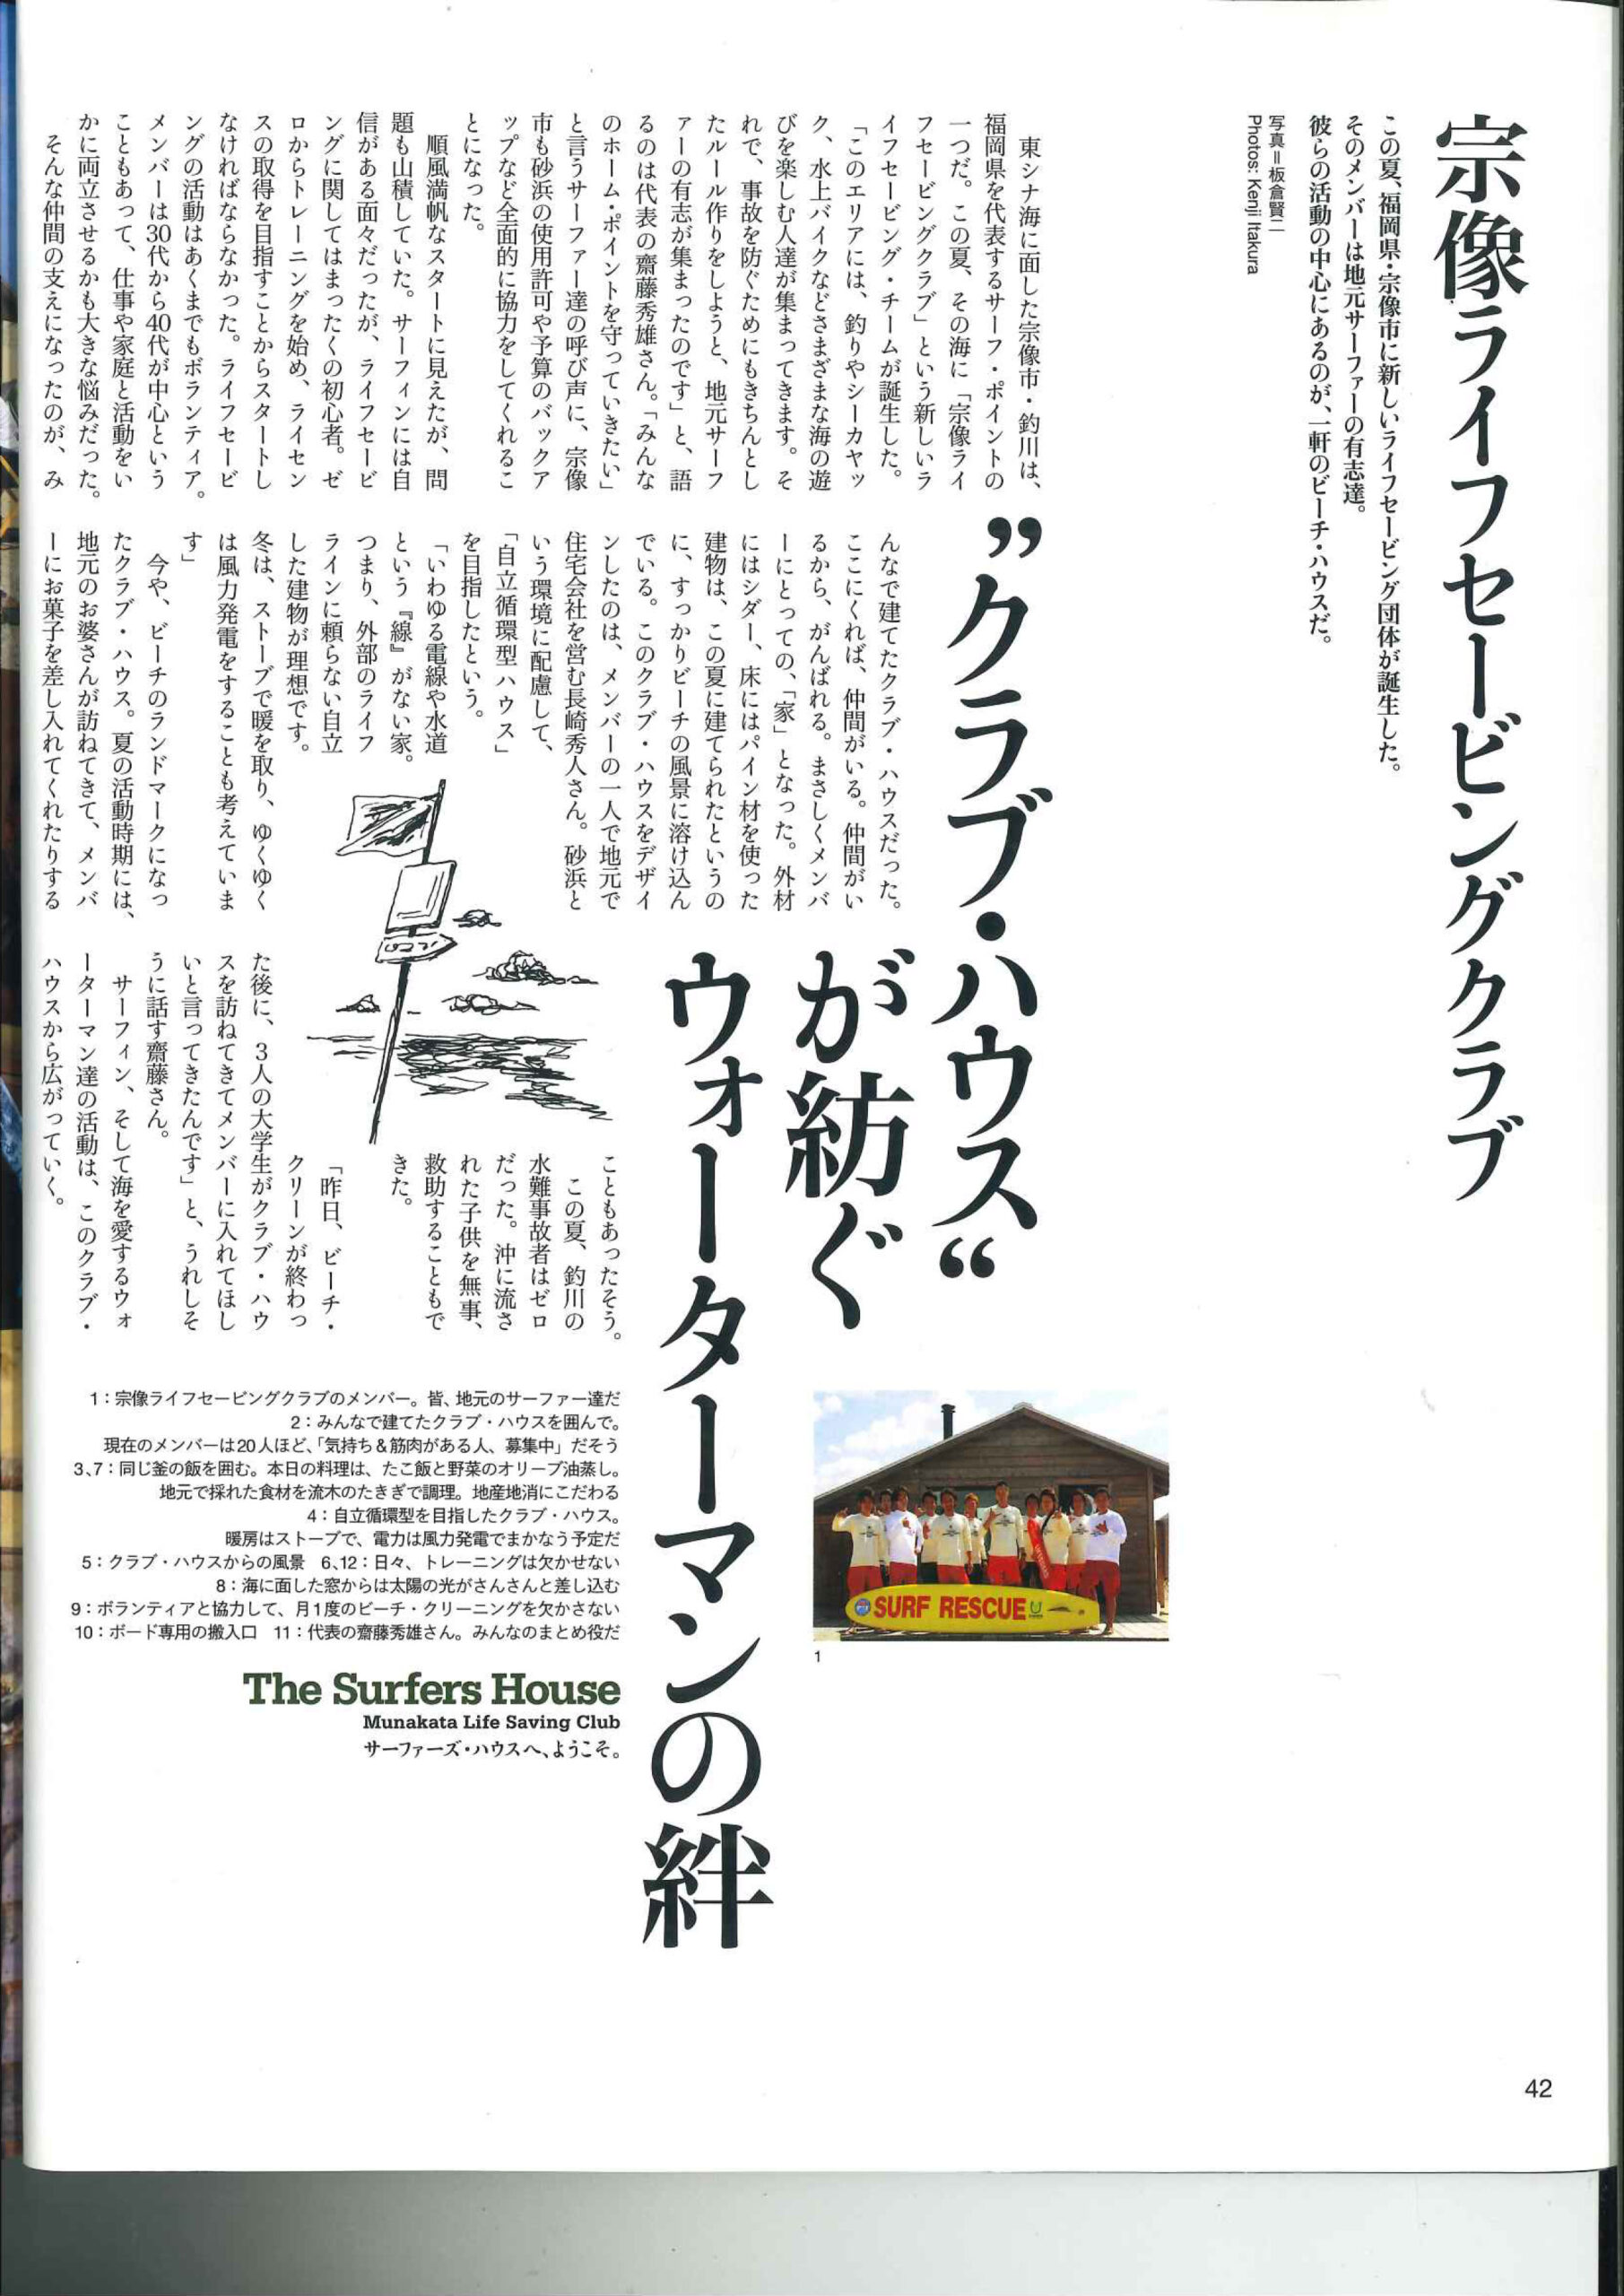 宗像ライフセービングクラブ
この夏、福岡県・宗像市に新しいライフセービング団体が誕生した。
そのメンバーは地元サーファーの有志達。
彼らの活動の中心にあるのが、一軒のビーチ・ハウスだ。
写真＝板倉賢二
Photos: Kenji Itakura
”クラブ・ハウス“
が紡ぐ
ウォーターマンの絆
　東シナ海に面した宗像市・釣川は、
福岡県を代表するサーフ・ポイントの
一つだ。この夏、その海に「宗像ライ
フセービングクラブ」という新しいラ
イフセービング・チームが誕生した。
「このエリアには、釣りやシーカヤッ
ク、水上バイクなどさまざまな海の遊
びを楽しむ人達が集まってきます。そ
れで、事故を防ぐためにもきちんとし
たルール作りをしようと、地元サーフ
ァーの有志が集まったのです」と、語
るのは代表の齋藤秀雄さん。「みんな
のホーム・ポイントを守っていきたい」
と言うサーファー達の呼び声に、宗像
市も砂浜の使用許可や予算のバックア
ップなど全面的に協力をしてくれるこ
とになった。
　順風満帆なスタートに見えたが、問
題も山積していた。サーフィンには自
信がある面々だったが、ライフセービ
ングに関してはまったくの初心者。ゼ
ロからトレーニングを始め、ライセン
スの取得を目指すことからスタートし
なければならなかった。ライフセービ
ングの活動はあくまでもボランティア。
メンバーは30代から40代が中心という
こともあって、仕事や家庭と活動をい
かに両立させるかも大きな悩みだった。
　そんな仲間の支えになったのが、み
んなで建てたクラブ・ハウスだった。
ここにくれば、仲間がいる。仲間がい
るから、がんばれる。まさしくメンバ
ーにとっての、「家」となった。外材
にはシダー、床にはパイン材を使った
建物は、この夏に建てられたというの
に、すっかりビーチの風景に溶け込ん
でいる。このクラブ・ハウスをデザイ
ンしたのは、メンバーの一人で地元で
住宅会社を営む長崎秀人さん。砂浜と
いう環境に配慮して、
「自立循環型ハウス」
を目指したという。
「いわゆる電線や水道
という『線』がない家。
つまり、外部のライフ
ラインに頼らない自立
した建物が理想です。
冬は、ストーブで暖を取り、ゆくゆく
は風力発電をすることも考えていま
す」
　今や、ビーチのランドマークになっ
たクラブ・ハウス。夏の活動時期には、
地元のお婆さんが訪ねてきて、メンバ
ーにお菓子を差し入れてくれたりする
こともあったそう。
　この夏、釣川の
水難事故者はゼロ
だった。沖に流さ
れた子供を無事、
救助することもで
きた。
「昨日、ビーチ・
クリーンが終わっ
た後に、3人の大学生がクラブ・ハウ
スを訪ねてきてメンバーに入れてほし
いと言ってきたんです」と、うれしそ
うに話す齋藤さん。
　サーフィン、そして海を愛するウォ
ーターマン達の活動は、このクラブ・
ハウスから広がっていく。
SURF RESCUE
1
1：宗像ライフセービングクラブのメンバー。皆、地元のサーファー達だ
2：みんなで建てたクラブ・ハウスを囲んで。
現在のメンバーは20人ほど、「気持ち＆筋肉がある人、募集中」だそう
3、7：同じ釜の飯を囲む。本日の料理は、たこ飯と野菜のオリーブ油蒸し。
地元で採れた食材を流木のたきぎで調理。地産地消にこだわる
4：自立循環型を目指したクラブ・ハウス。
暖房はストーブで、電力は風力発電でまかなう予定だ
5：クラブ・ハウスからの風景　6、12：日々、トレーニングは欠かせない
8：海に面した窓からは太陽の光がさんさんと差し込む
9：ボランティアと協力して、月1度のビーチ・クリーニングを欠かさない
10：ボード専用の搬入口　11：代表の齋藤秀雄さん。みんなのまとめ役だ
The Surfers House
Munakata Life Saving Club
サーファーズ・ハウスへ、ようこそ。
42